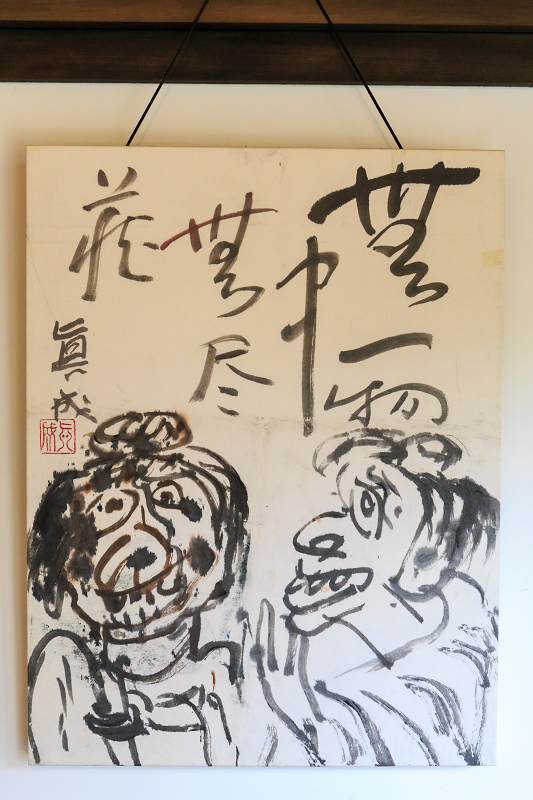 無一物
中
無尽
蔵
眞成